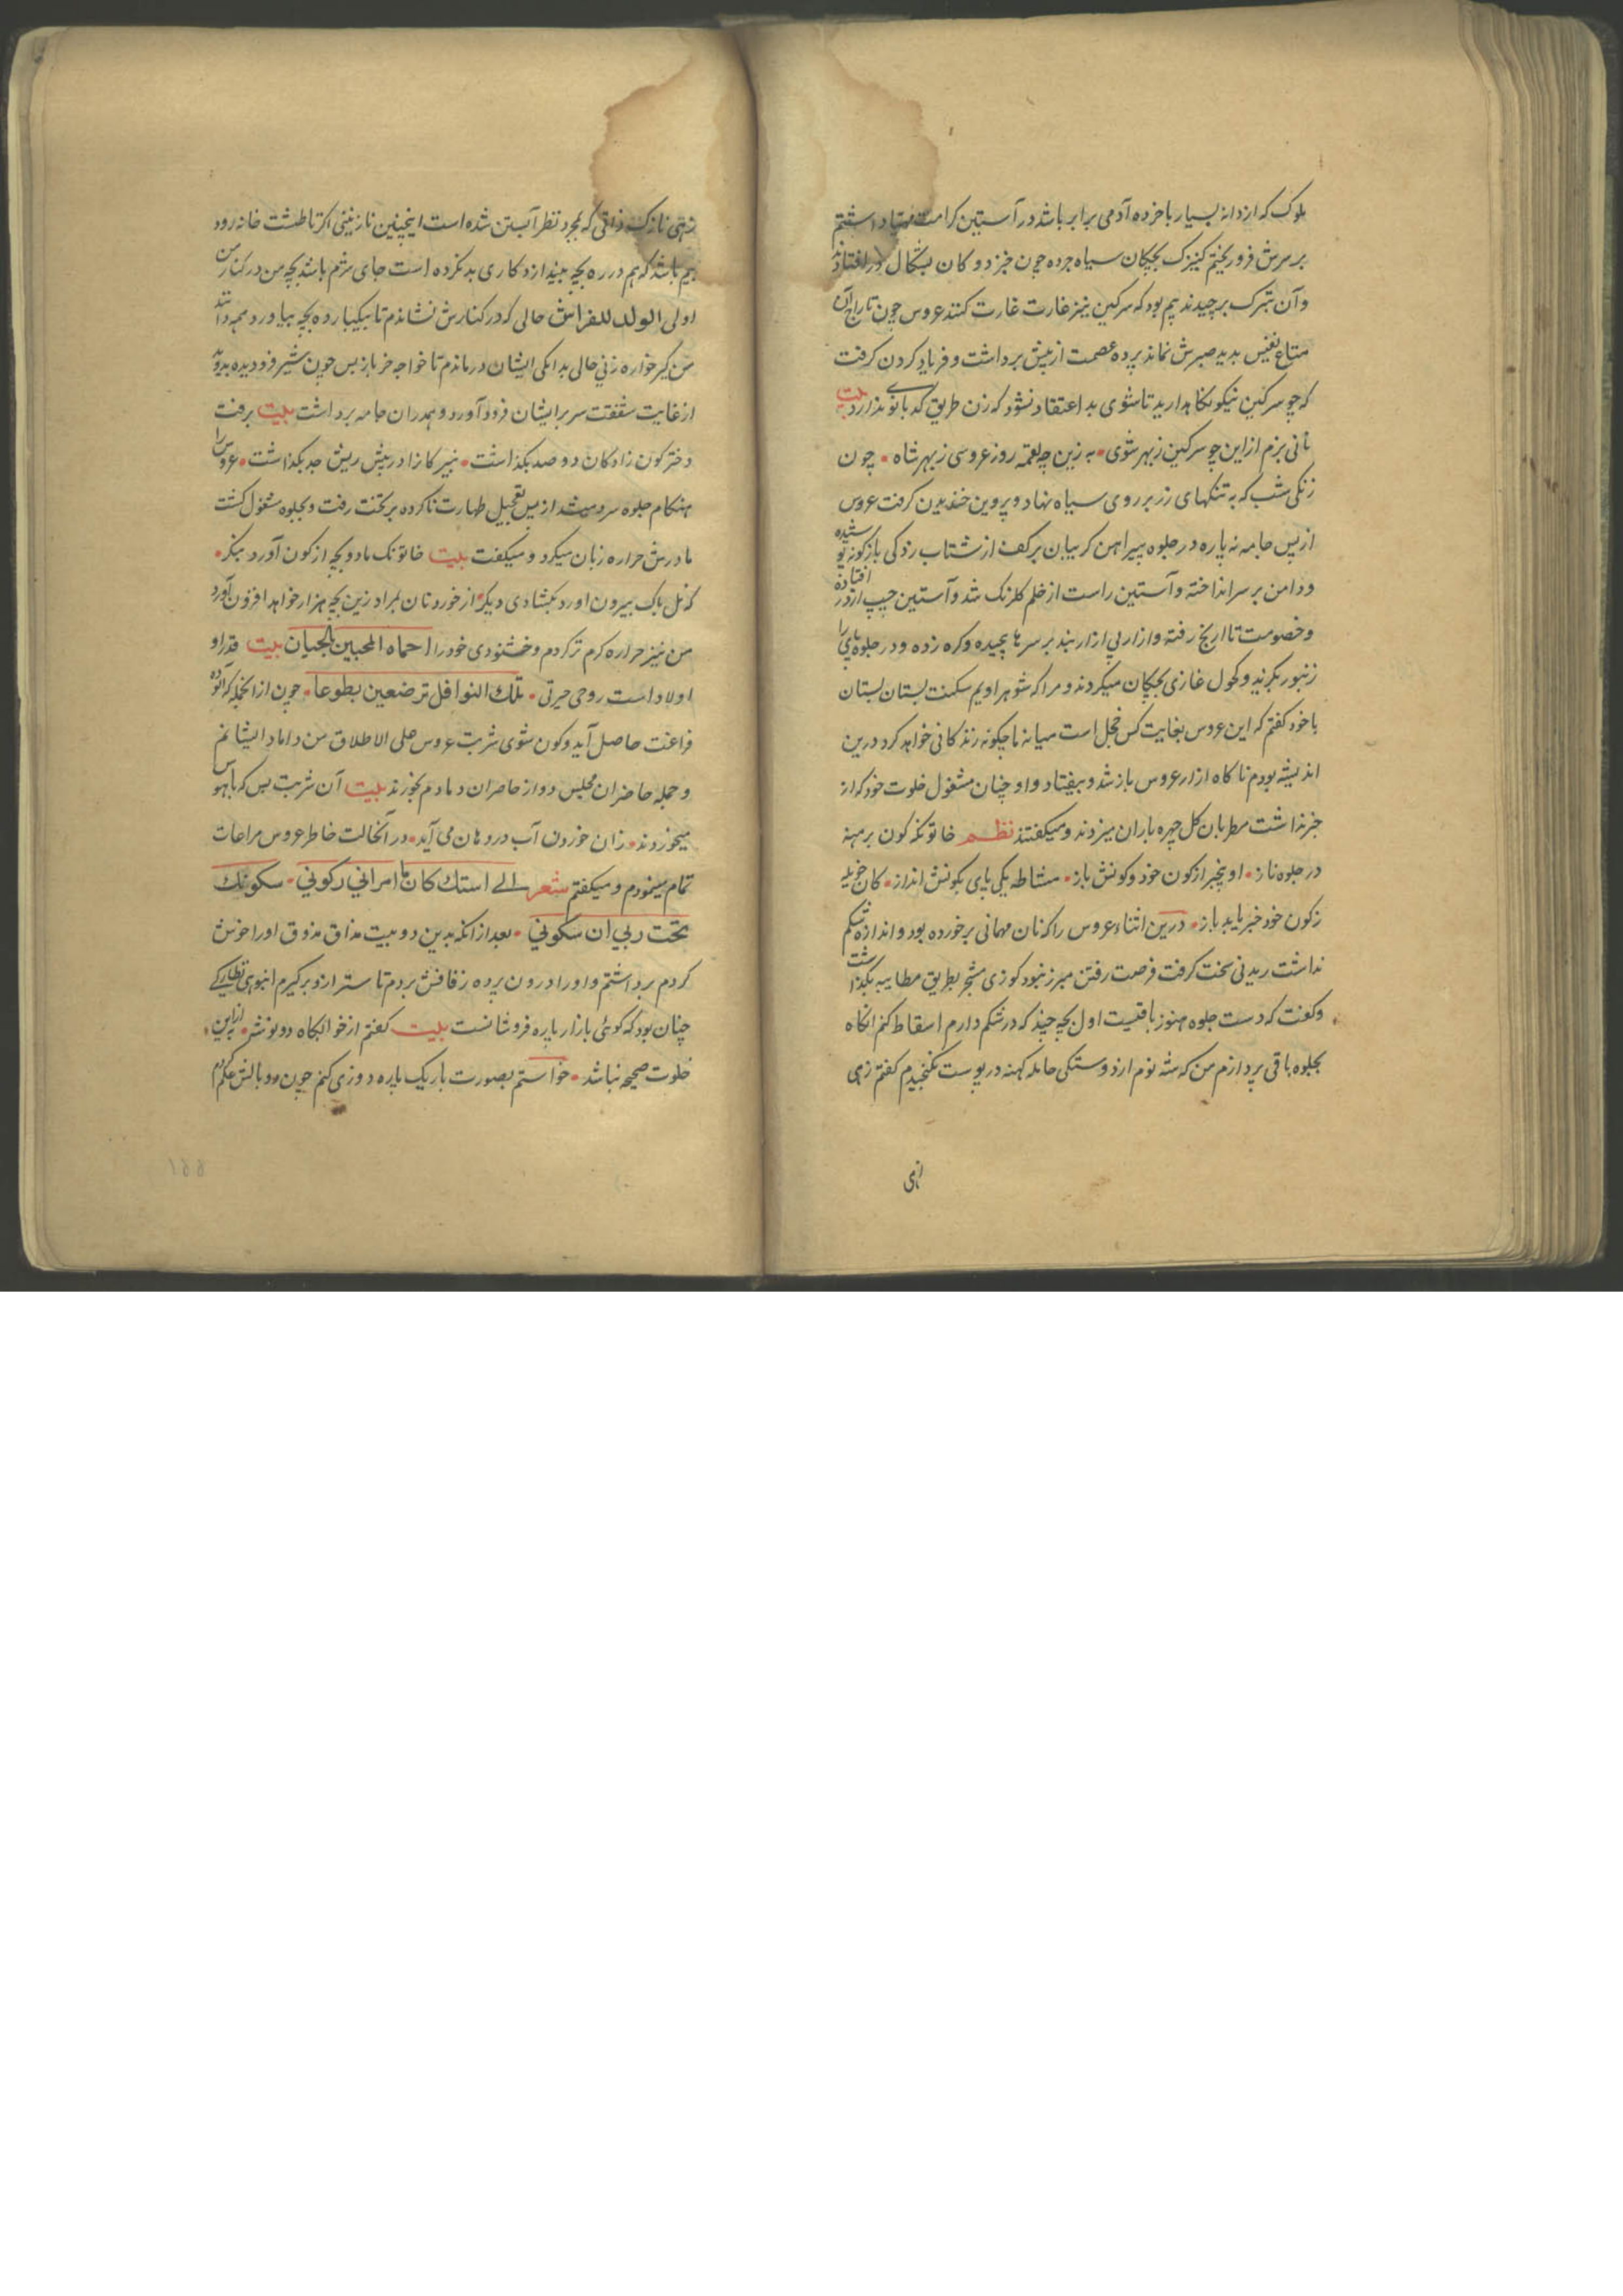 بلوک که از دانه بسیار با خرده آدمی برابر باشد در آستین کرامت مهیا داشتم
بر سرش فرو ریختم کنیزک بچکان سیاه جرده چون خبزدوکان بشکال در افتادند
و آن تبرک برچیدند بیم بود که سرکین نیز غارت غارت کنند عروس چون تاراج آن
متاع نفیس بدید صبرش نماند پرده عصمت از پیش برداشت و فریاد کردن کرفت
که چو سرکین نیکو نکاهدارید تا شوی بد اعتقاد نشود که زن طریق کدبانو ندارد بیت
نانی بزم از این چو سرکین ز بهر شوی • به زین چه لقمه روز عروسی ز بهر شاه • چون
زنکی شب که به تنکهای زر بر روی سیاه نهاد و پروین خندیدن کرفت عروس
از پس جامه نه پاره در جلوه پیراهن کریبان بر کف از شتاب زدکی بازکونه پوشیده
و دامن بر سر انداخته و آستین راست از خلم کلرنک شد و آستین چپ از در افتاده
و خصومت تا اریخ رفته و ازار بی ازاربند بر سرها پیچیده و کره زده و در جلوه پای را
زنبور بکزند و کحول غازی بچکان میکردند و مرا که شوهر اویم سکنت بستان بستان
با خود کفتم که این عروس بغایت کس خجل است میانه ما چکونه زندکانی خواهد کرد درین
اندیشه بودم ناکاه ازار عروس باز شد و بیفتاد و او چنان مشغول خلوت خود که از
خبر نداشت مطربان کل چهره باران میزدند و میکفتند نظم خاتونکه کون برهنه
در جلوه ناز • او بیخبر از کون خود و کونش باز • مشاطه یکی پای بکونش انداز • کان خویله
ز کون خود خبر یابد باز • درین اثناء عروس را که نان مهمانی بر خورده بود و اندازه شکم
نداشت ریدنی سخت کرفت فرصت رفتن مبرز نبود کوزی مشجر بطریق مطایبه بکذاشت
و کفت که دست جلوه هنوز باقیست اول بچه چند که در شکم دارم اسقاط کنم انکاه
بجلوه باقی پردازم من که شه نوم از دوستکی حامله کهنه در پوست نکنجیدم کفتم زهی
زهی
زهی نازک ذاتی که بمجرد نظر آبستن شده است اینچنین نازنینی اکر تا طشت خانه رود
بیم باشد که هم در ره بچه بیندازد کاری بد نکرده است جای شرم باشد بچه من در کنار من
اولی الولد للفراش حالی که در کنارش نشاندم تا بیکبار ده بچه بیاورد همه دانند
من کیرخواره زنی حالی بدانکی ایشان درماندم تا خواجه خر باز پس چون شیر فرو دیده بدو
از غایت شفقت سر بر ایشان فرود آورد و بمدران جامه برداشت بیت برفت
دختر کون زادکان دو صد بکذاشت • نبیرکانرا در پیش ریش جد بکذاشت • عروس را
هنکام جلوه سر دست شد از پس تعجیل طهارت ناکرده بر تخت رفت و بجلوه مشغول کشت
مادرش حراره زبان میکرد و میکفت بیت خاتونک ما دو بچه از کون آورد میکر •
که نل پاک بیرون اورد بکشادی دیکر • از خوردنان بمراد زین بچه هزار خواهد افزون آورد
من نیز حراره کرم تر کردم و خشنودی خود را احماه المحبین الجیان بیت قدر او
اولاد است روحی حیرتی • تلك النوافل ترضعین بطوعا • چون از انجمله که آلوده
فراغت حاصل آید و کون شوی شربت عروس علی الاطلاق من داماد ایشانم
و جمله حاضران مجلس دو از حاضران دمادم بخورند بیت آن شربت بس که با هوس
میخوردند • زان خوردن آب در دهان می آید • در آنحالت خاطر عروس مراعات
تمام مینمودم و میکفتم شعر الے استك كان ما امرانی رکونی • سکونك
تحت ربی ان سکونی • بعد از انکه بدین دو بیت مذاق مذوق او را خوش
کردم برداشتم و او را درون پرده زفافش بردم تا ستر ازو برکیرم انبوهی نظارکی
چنان بود که کوئی بازار پاره فروشانست بیت کفتم از خوابکاه دو نوش • به از این •
خلوت صحیحه نباشد • خواستم بصورت باریک پاره دوزی کنم چون دو بالش عکم